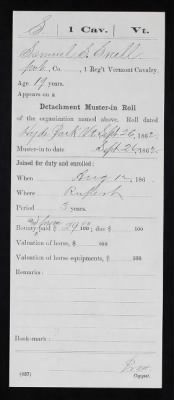 S | 1 Cav. | Vt.
Samuel S. Snell
, Co. , 1 Reg't Vermont Cavalry.
Age 19 years.
Appears on a
Detachment Muster-in Roll
of the organization named above. Roll dated
Hyde Park Vt Sept 26, 1862.
Muster-in to date Sept 26, 1862.
Joined for duty and enrolled:
When Aug 12, 186 .
Where
Period 3 years.
Bounty paid $ 29 100; due $ 100
Valuation of horse, $ 100
Valuation of horse equipments, $ 100
Remarks:
Book mark:
(637)
Copyist.